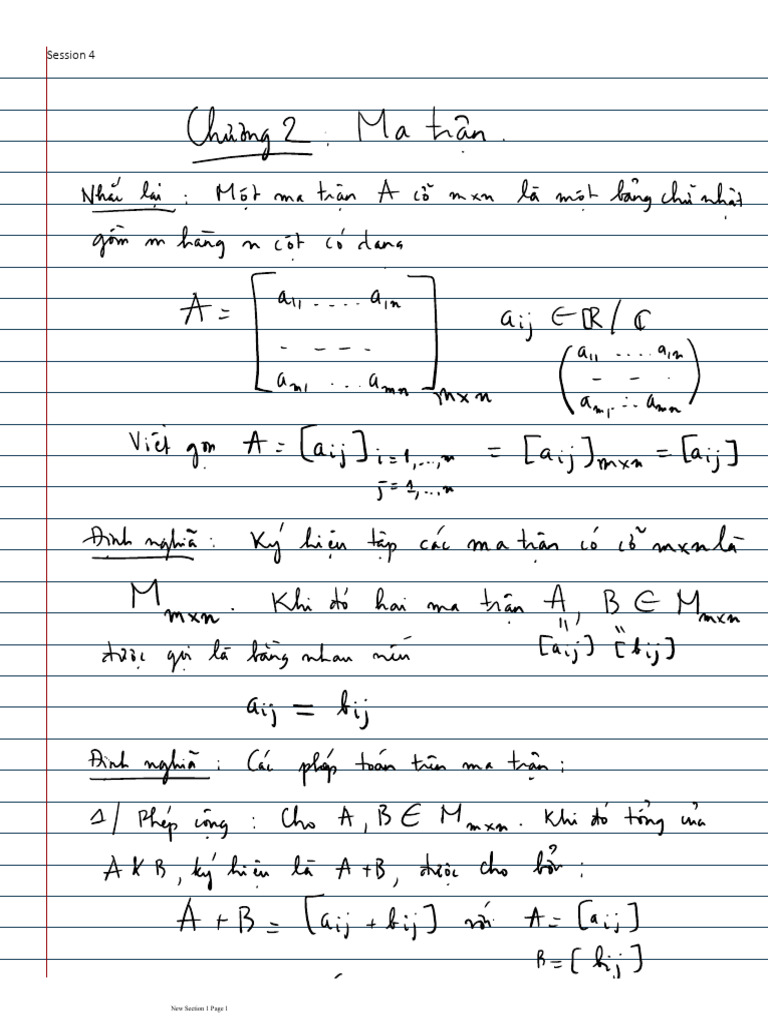 Session 4
Chương 2 : Ma trận.
Nhắc lại : Một ma trận A cỡ m×n là một bảng chữ nhật
gồm m hàng n cột có dạng
A = [a11 .... a1n
- - - -
am1 ... amn]m×n
aij ∈ ℝ / ℂ
(a11 .... a1n
- - .
am1 ... amn)
Viết gọn A = [aij] i=1,...,m = [aij]m×n = [aij]
j=1,...n
Định nghĩa : Ký hiệu tập các ma trận có cỡ m×n là
Mm×n. Khi đó hai ma trận A, B ∈ Mm×n
" "
[aij] [bij]
được gọi là bằng nhau nếu
aij = bij
Định nghĩa : Các phép toán trên ma trận :
1/ Phép cộng : Cho A, B ∈ Mm×n. Khi đó tổng của
A & B, ký hiệu là A+B, được cho bởi :
A + B = [aij + bij] với A = [aij]
B = [bij]
New Section 1 Page 1